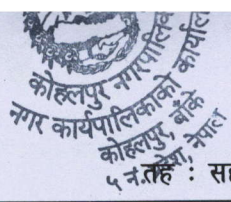 कोहलपुर नगरपालिका
नगर कार्यपालिकाको कार्यालय
कोहलपुर, बाँके
५ नं. प्रदेश, नेपाल
तह :